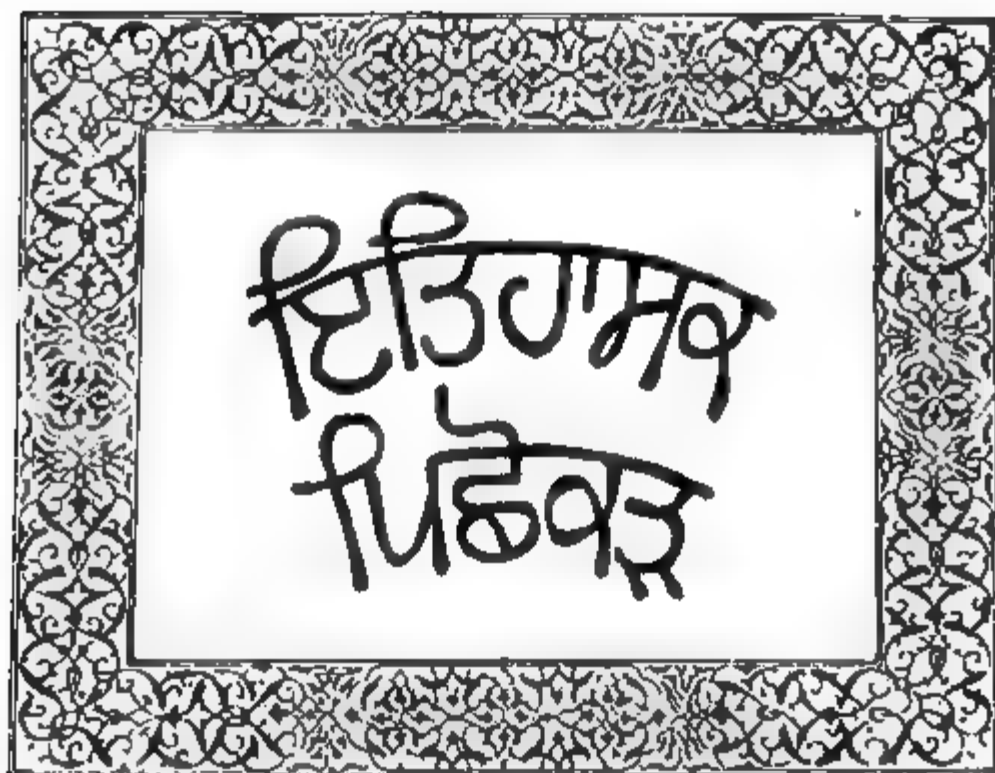 ਇਤਿਹਾਸਕ
ਪਿਛੋਕੜ